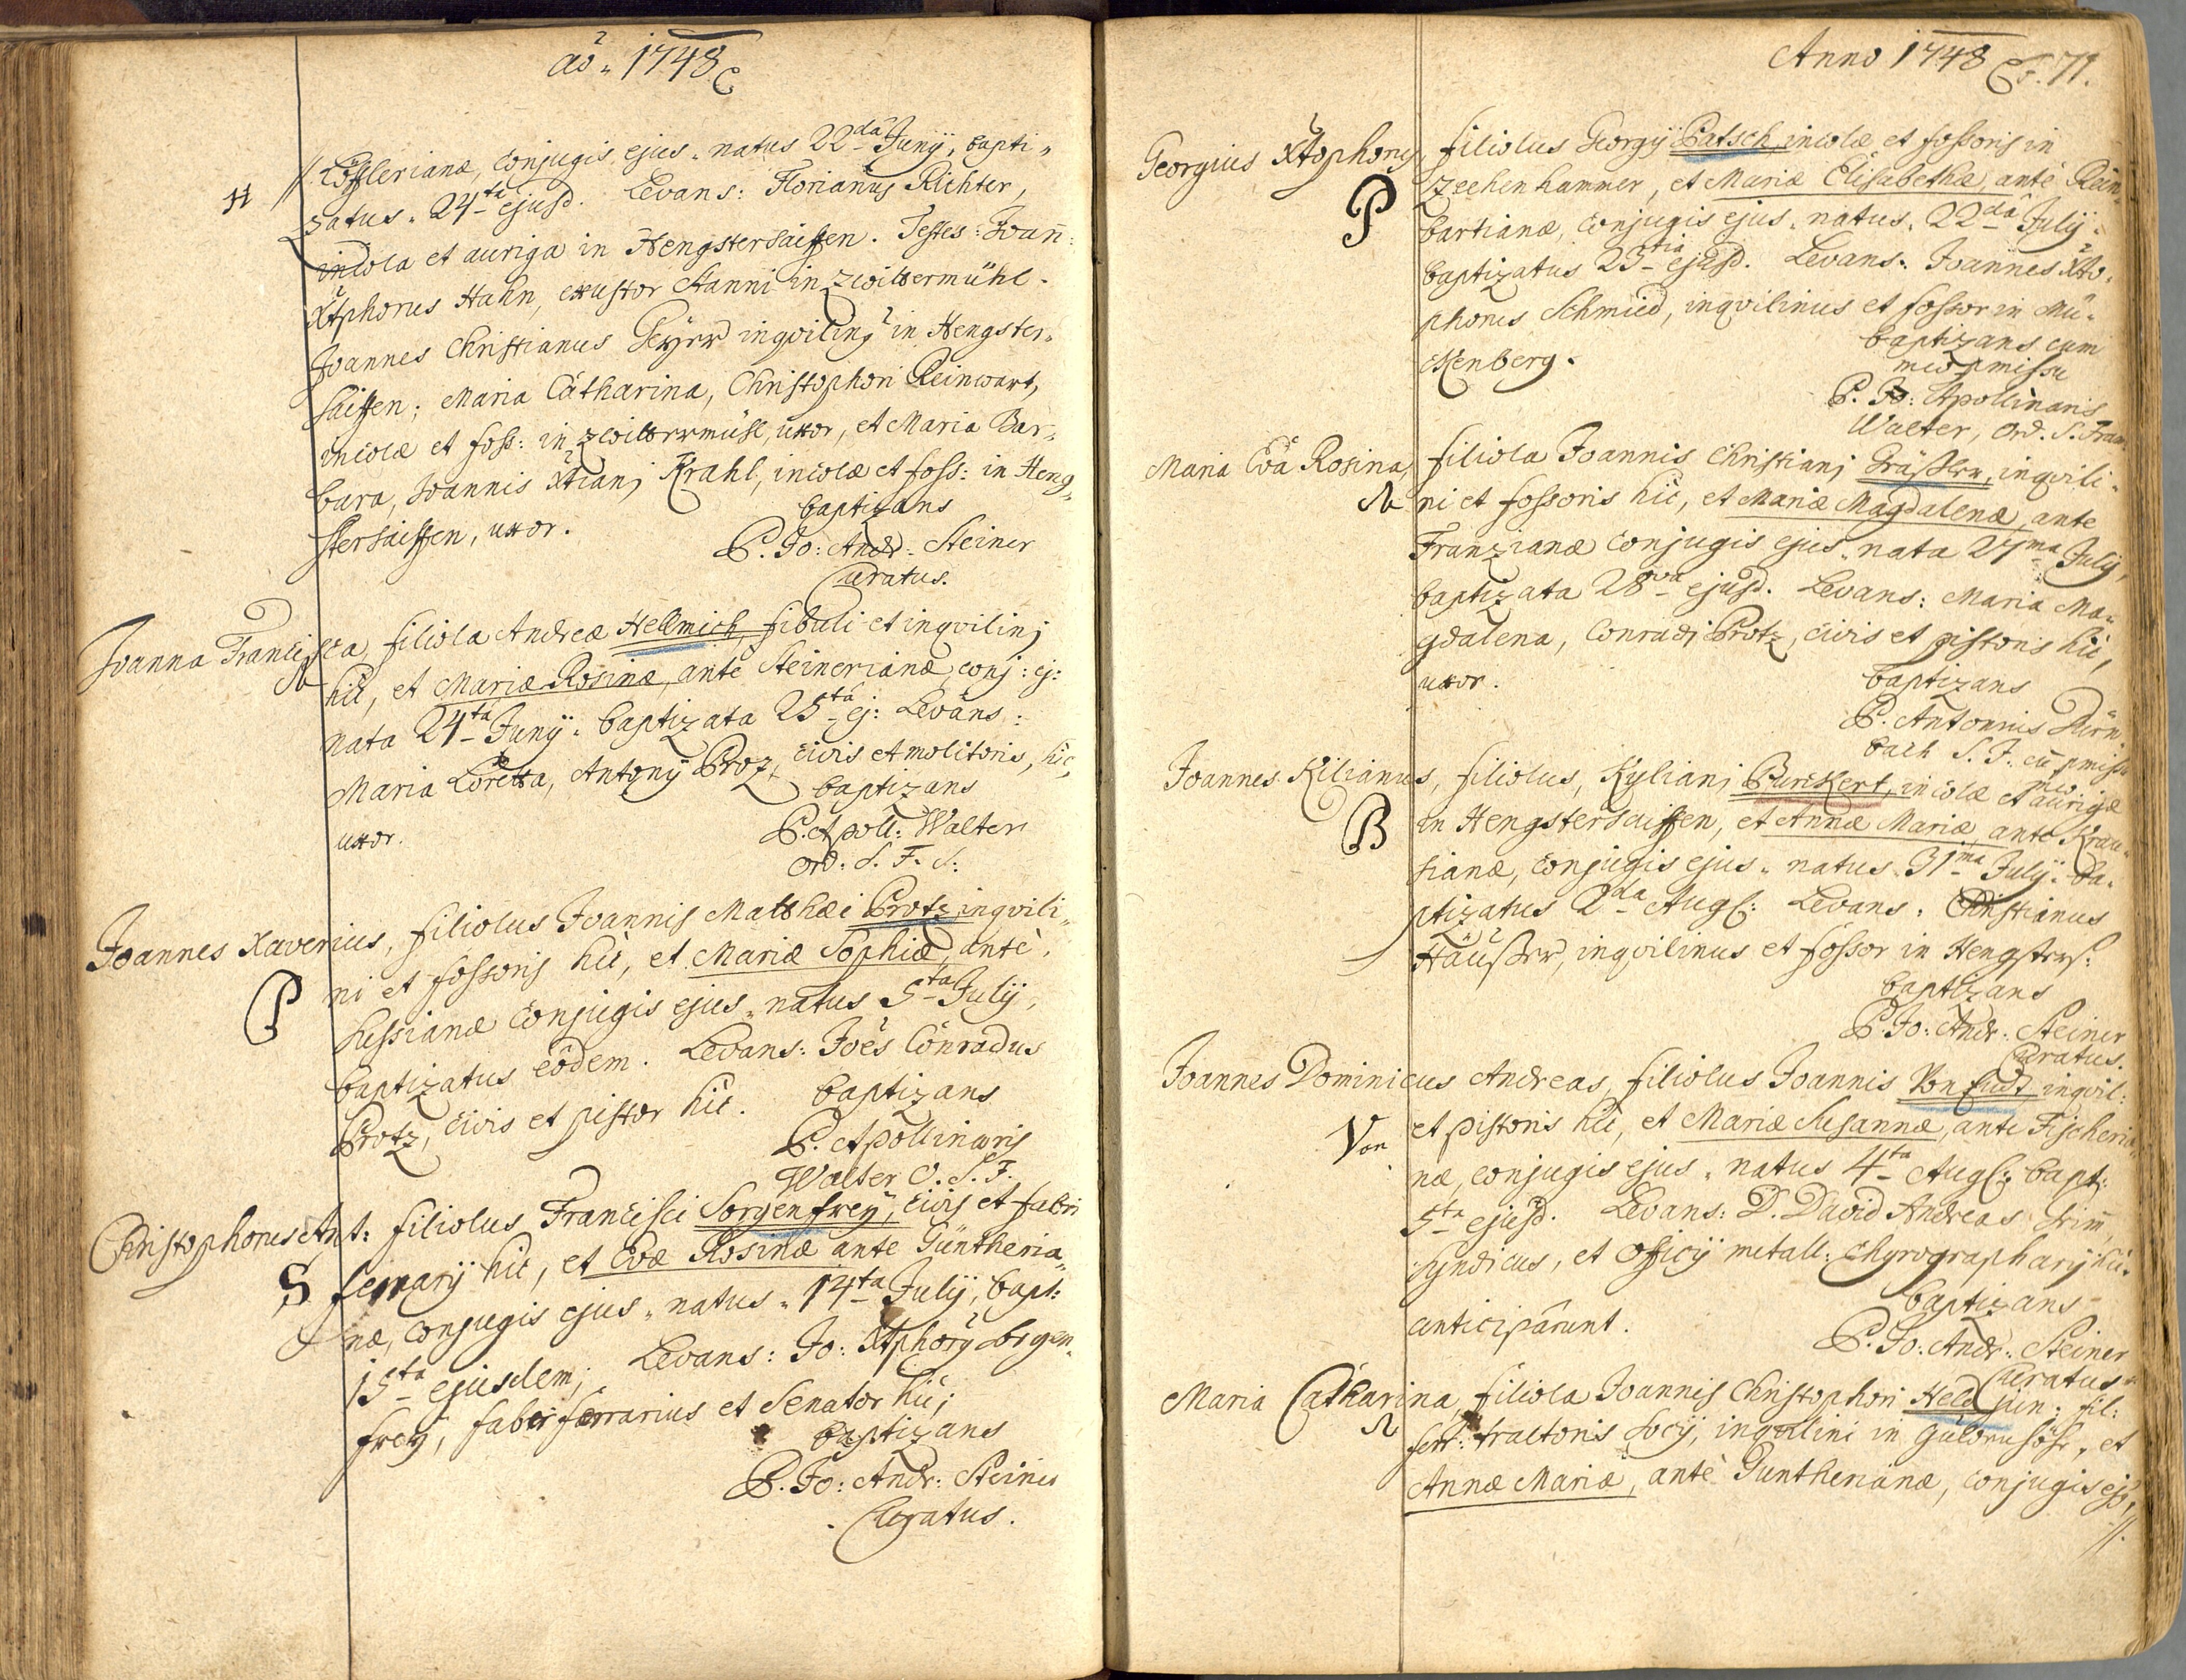 ao 1748
// Lösslerianæ, conjugis ejus. natus 22da Junÿ, bapti„
H zatus. 24ta ejusd. Levans: Florianus Richter,
incola et auriga in Hengstersaissen. Testes: Joan̄:
Xtphorus Hahn, exustor stanni in zwittermühl.
Joannes Christianus Geÿer inqvilinus in Hengster„
saissen; Maria Catharina, Christophori Reinwart,
incolæ et foss: in zwittermühl, uxor, et Maria Bar„
bara, Joannis Xtiani Krahl, incolæ et foss: in Heng„
stersaissen, uxor.
baptizans
P. Jo: Andr: Steiner
Curatus.
Joanna Francisca, filiola Andreæ Hellmich, fibuli et inqvilini
hic, et Mariæ Rosinæ, antè Steinerianæ, conj: ej:
nata 24ta Junÿ. baptizata 25ta ej: Levans:
Maria Loretta, Antonÿ Proz, civis et molitoris, hic,
uxor.
baptizans
P. Apoll: Walter
Ord: S. F. S:
Joannes Xaverius, filiolus Joannis Matthæi Protz inqvili„
P ni et fossoris hic, et Mariæ Sophiæ, antè
Hessianæ conjugis ejus. natus 5ta Julÿ,
baptizatus eodem. Levans: Joēs Conradus
Protz, civis et pistor hic.
baptizans
P. Apollinaris
Walter O. S. F.
Christophorus Ant: filiolus Francisci Sorgenfreÿ, civis et fabri
S ferrarÿ hic, et Evæ Rosinæ ante Güntheria„
næ, conjugis ejus. natus. 14ta Julÿ, bapt:
15ta ejusdem; Levans: Jo: Xtphorus Sorgen„
freÿ, faber ferrarius et Senator hic;
baptizans
P. Jo: Andr: Steiner
Curatus.
Anno 1748 71.
Georgius Xtophorus, filiolus Georgÿ Patsch, incolæ et fossoris in
P Zechenhammer, et Mariæ Elisabethæ, antè Rein„
bartianæ, conjugis ejus. natus. 22da Julÿ.
baptizatus 23tia ejusd. Levans: Joannes Xto„
phorus Schmied, inqvilinus et fossor in Mü„
ckenberg.
baptizans cum
meo pmissu
P. Jo: Apollinaris
Walter, Ord. S. Fran.
Maria Eva Rosina, filiola Joannis Christiani Gräsler, inqvili„
ni et fossoris hic, et Mariæ Magdalenæ, ante
Franzianæ conjugis ejus. nata 27ma Julÿ,
baptizata 28va ejusd. Levans: Maria Ma„
gdalena, Conradi Protz, civis et pistoris hic,
uxor.
baptizans
P. Antonius Dürn
bach S. F. cū pmissu
meo.
Joannes Kilianus, filiolus, Kyliani Burckert, incolæ et aurigæ
B in Hengstersaissen, et Annæ Mariæ, ante Krau„
sianæ, conjugis ejus. natus. 31ma Julÿ. ba„
ptizatus 2da Aug: Levans: Christianus
Häusler, inqvilinus et fossor in Hengsters:
baptizans
P. Jo: Andr: Steiner
Curatus.
Joannes Dominicus Andreas, filiolus Joannis Von inqvil:
Von et pistoris hic, et Mariæ Susannæ, ante Fischeria„
næ, conjugis ejus. natus 4ta Aug: bapt:
5ta ejusd. Levans: D. David Andreas Grim̄
Syndicus, et Officÿ metall: Chyrographarÿ hic.
anticiparunt.
baptizans
P. Jo: Andr: Steiner
Curatus
Maria Catharina, filiola Joannis Christophori Held jun: fil:
ferr: tractoris socÿ, inqvilini in et
Annæ Mariæ, antè Güntherianæ, conjugis ejus,
//.